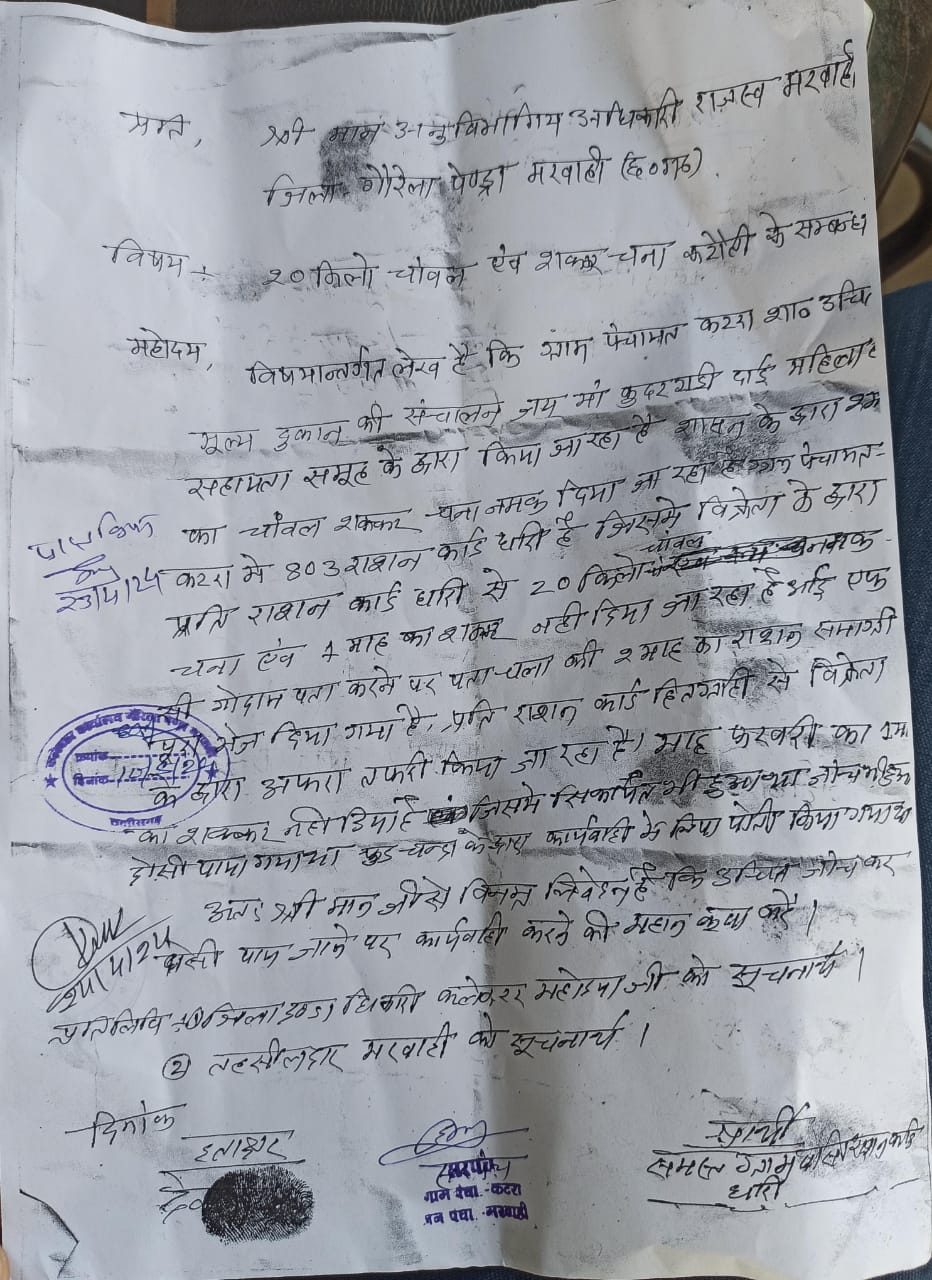 प्रति,
श्री मान अनुविभागिय अधिकारी राजस्व मरवाही
जिला-गौरेला पेण्ड्रा मरवाही (छ०ग०)
विषय :- २० किलो चांवल एंव शक्कर चना कटौती के सम्बन्ध
महोदय,
विषयान्तर्गत लेख है कि ग्राम पंचायत कटरा शा० उचि
मूल्य दुकान की संचालन जय मां कुदरगढी दाई महिला
सहायता समूह के द्वारा किया जा रहा है शासन के द्वारा २ माह
का चांवल शक्कर चना नमक दिया जा रहा है ग्राम पंचायत-
कटरा मे 803 राशन कार्ड धारी है जिसमे विक्रेता के द्वारा
प्रति राशन कार्ड धारी से 20 किलो चांवल
चना एंव 1 माह का शक्कर नही दिया जा रहा है आई एफ
सी गोदाम पता करने पर पता चला की २ माह का राशन सामाग्री
भेज दिया गया है, प्रति राशन कार्ड हितग्राही से विक्रेता
के द्वारा अफरा तफरी किया जा रहा है। माह फरवरी का 1 माह
का शक्कर नही दिया है जिसमे सिकायत भी हुआ था जाँच मे
दोसी पाया गया था के द्वारा कार्यवाही के लिया किया गया था
अतः श्री मान जी से विनम्र निवेदन है कि उचित जाँच कर
दोसी पाए जाने पर कार्यवाही करने की महान कृपा करें।
प्रतिलिपि :- ① जिला दण्डाधिकारी कलेक्टर महोदया जी को सूचनार्थ।
② तहसीलदार मरवाही को सूचनार्थ।
दिनांक
हस्ताक्षर
सरपंच
ग्राम पंचा.-कटरा
जन पंचा.-मरवाही
प्रार्थी
समस्त ग्रामवासि राशन कार्ड
धारी
क्रमांक
दिनांक
छत्तीसगढ़